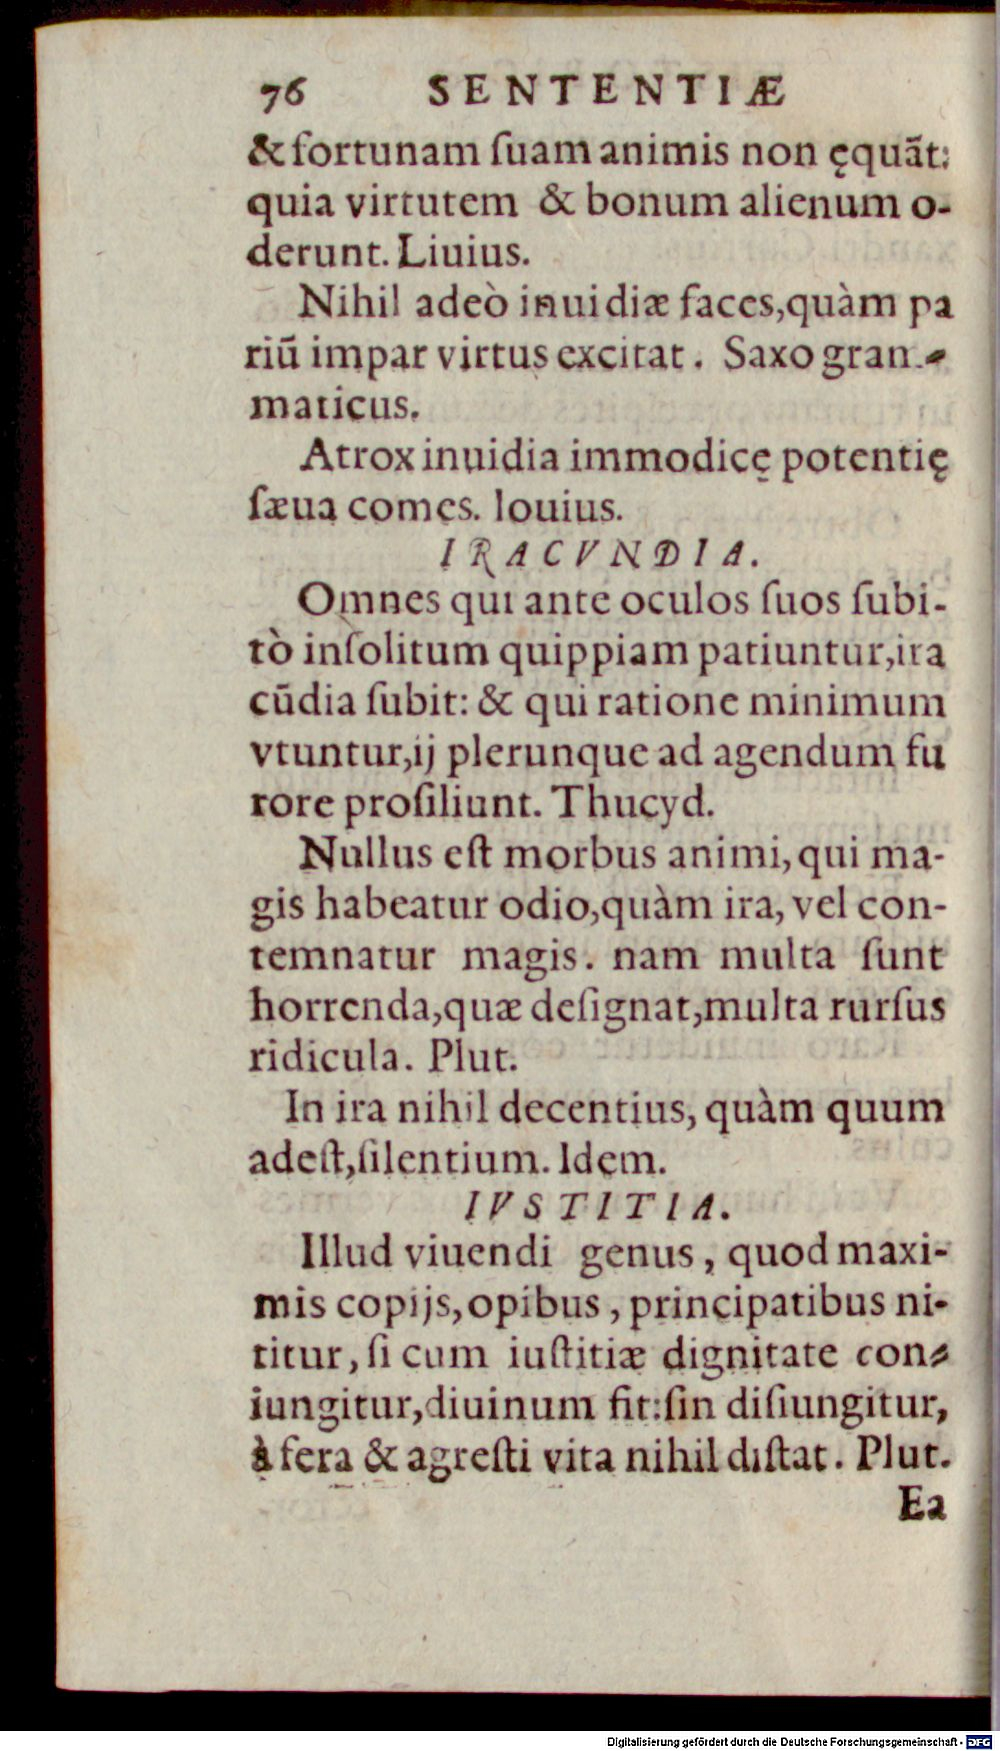 76 SENTENTIÆ
& fortunam ſuam animis non ęquãt:
quia virtutem & bonum alienum o-
derunt. Liuius.
Nihil adeò inuidiæ faces, quàm pa
riũ impar virtus excitat. Saxo gram-
maticus.
Atrox inuidia immodicę potentię
ſæua comes. Iouius.
IRACVNDIA.
Omnes qui ante oculos ſuos ſubi-
tò inſolitum quippiam patiuntur, ira
cũdia ſubit: & qui ratione minimum
vtuntur, ij plerunque ad agendum fu
rore proſiliunt. Thucyd.
Nullus eſt morbus animi, qui ma-
gis habeatur odio, quàm ira, vel con-
temnatur magis. nam multa ſunt
horrenda, quæ deſignat, multa rurſus
ridicula. Plut.
In ira nihil decentius, quàm quum
adeſt, ſilentium. Idem.
IVSTITIA.
Illud viuendi genus, quod maxi-
mis copijs, opibus, principatibus ni-
titur, ſi cum iuſtitiæ dignitate con-
iungitur, diuinum fit: ſin diſiungitur,
à fera & agreſti vita nihil diſtat. Plut.
Ea
Digitalisierung gefördert durch die Deutsche Forschungsgemeinschaft - DFG